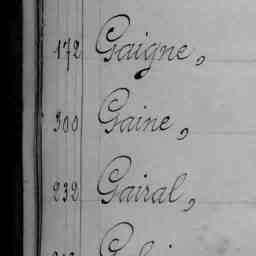 172 Gaigne,
300 Gaine,
232 Gairal,